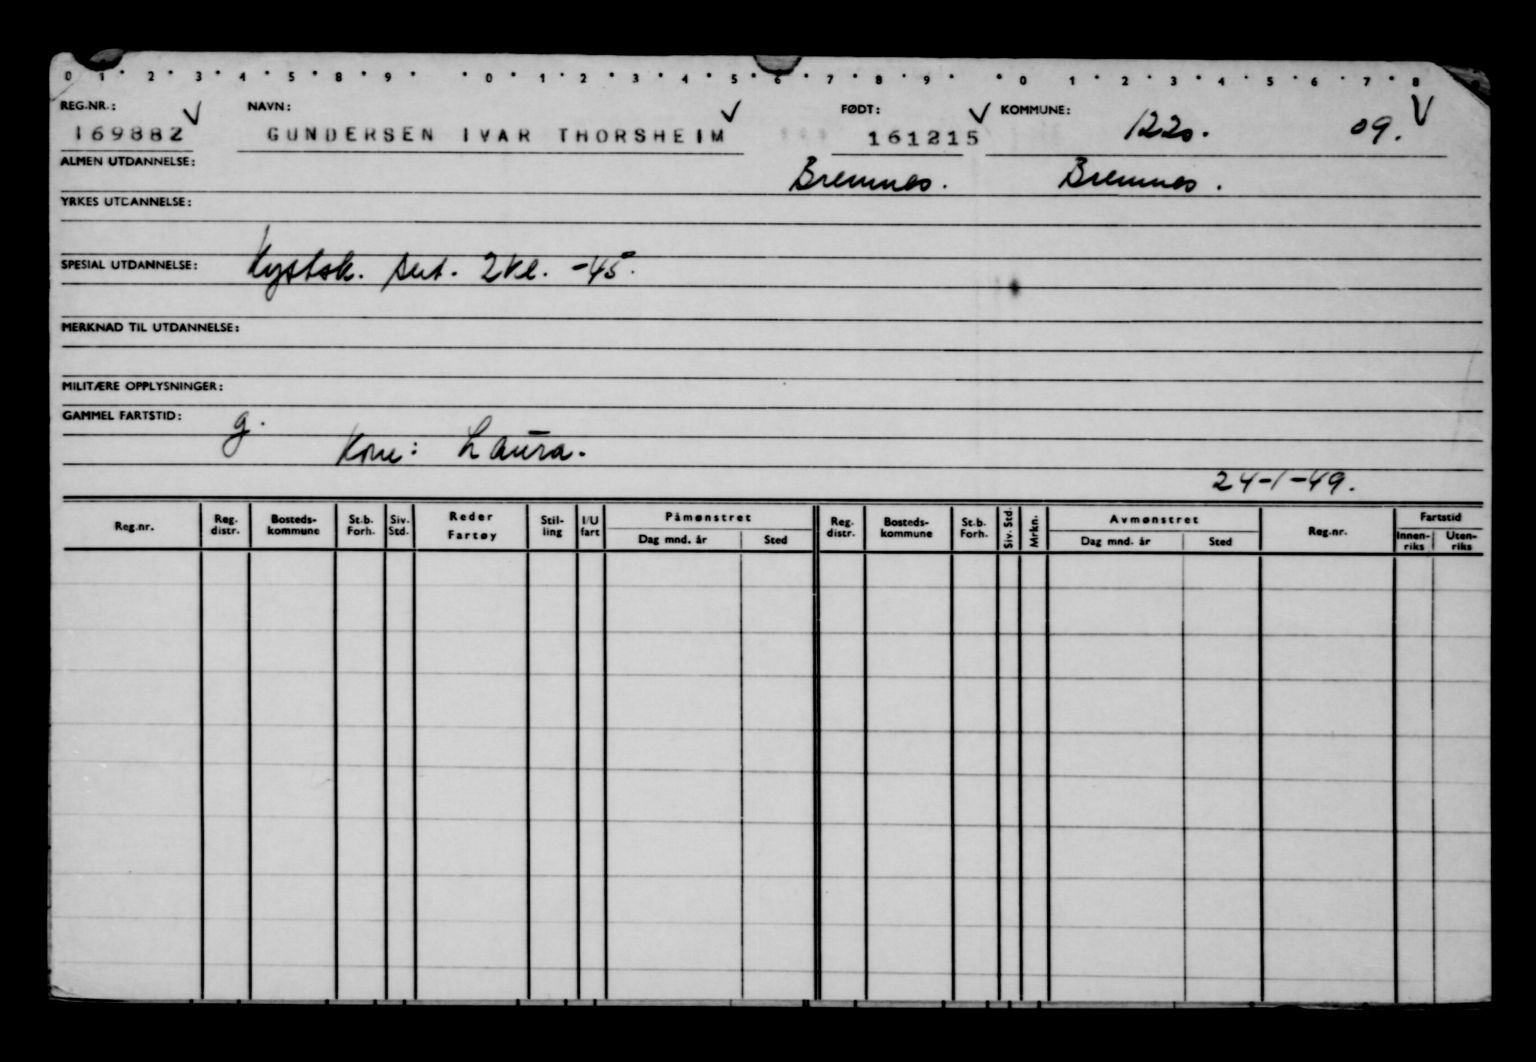 0 1 2 3 4 5 8 9 0 1 2 3 4 5 6 7 8 9 0 1 2 3 4 5 6 7 8
REG.NR.: NAVN: FØDT: KOMMUNE:
169882 GUNDERSEN IVAR THORSHEIM 161215 1220. 09.
ALMEN UTDANNELSE: Bremnes. Bremnes.
YRKES UTDANNELSE:
SPESIAL UTDANNELSE: Kystsk. sert. 2kl. -45.
MERKNAD TIL UTDANNELSE:
MILITÆRE OPPLYSNINGER:
GAMMEL FARTSTID: g.
Kone: Laura.
24-1-49.
Reg.nr. Reg. distr. Bosteds-kommune St.b. Forh. Siv. Std. Reder Fartøy Stil-ling I/U fart Påmønstret Dag mnd. år Sted Reg. distr. Bosteds-kommune St.b. Forh. Siv. Std. Mrkn. Avmønstret Dag mnd. år Sted Reg.nr. Fartstid Innen-riks Uten-riks